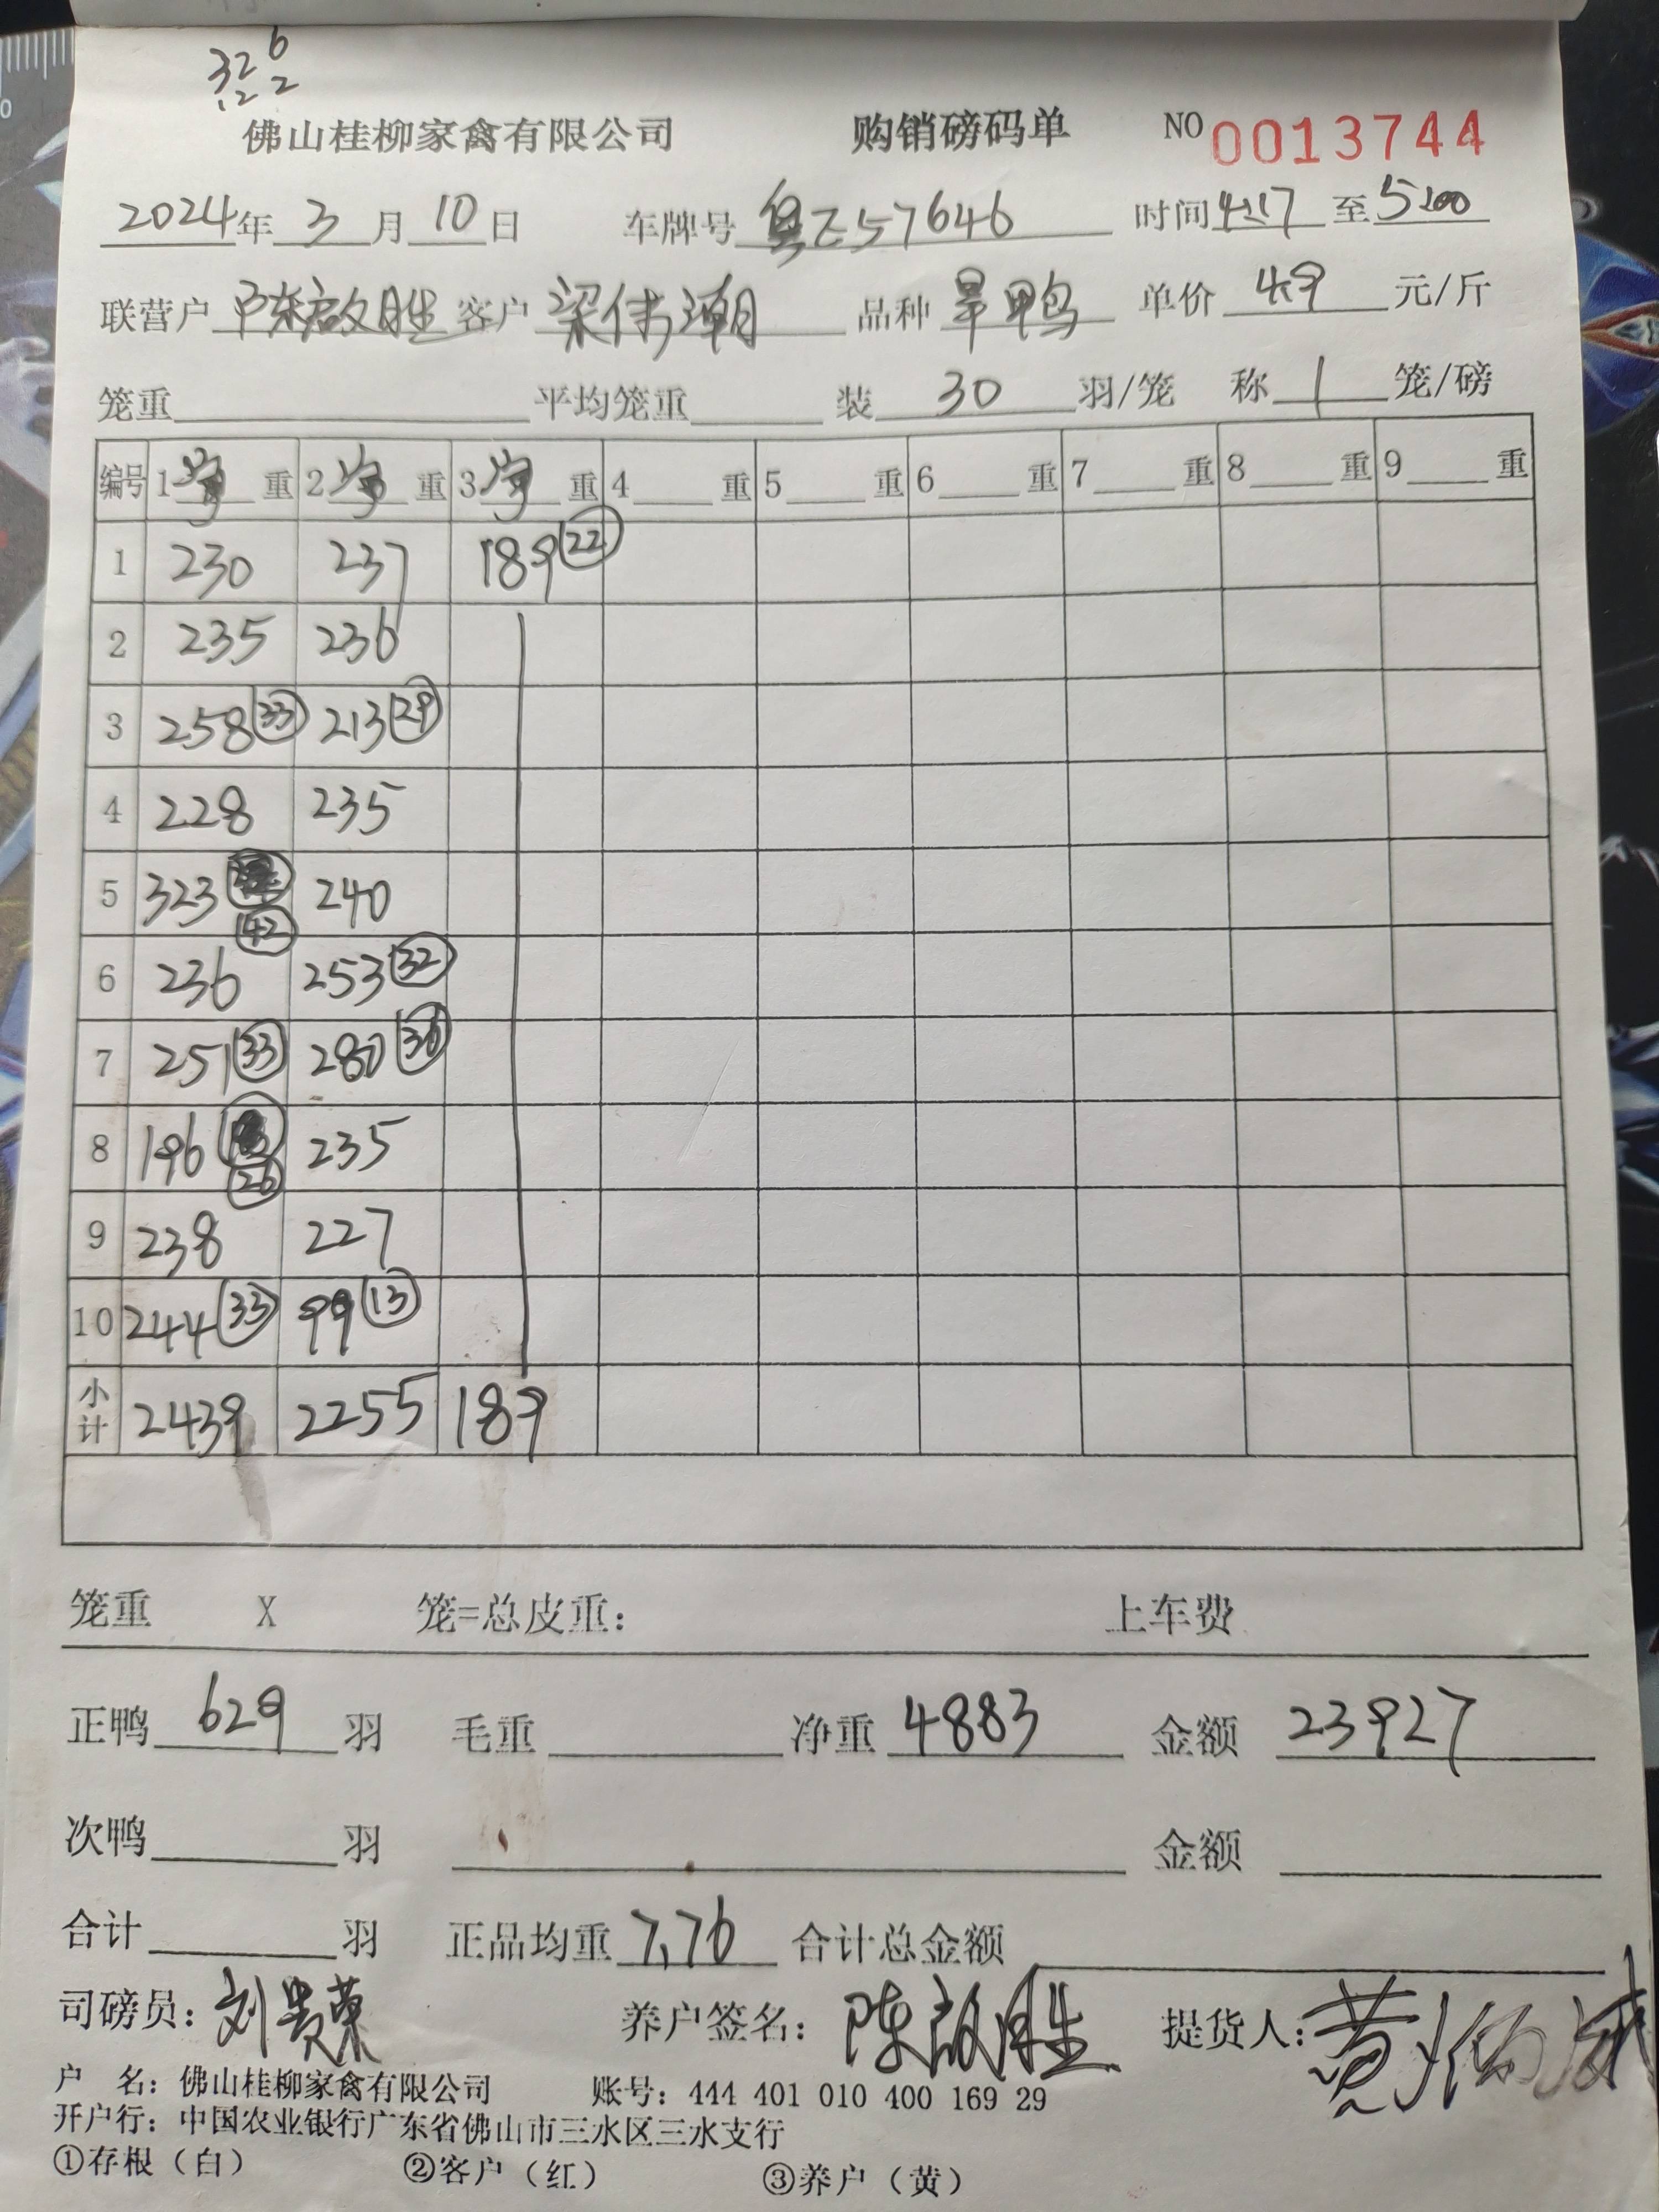 32 6
12 2
佛山桂柳家禽有限公司 购销磅码单 NO 0013744
2024年 3月 10日 车牌号 粤Z57646 时间 4:17 至 5:00
联营户 陈啟胜 客户 梁伟潮 品种 旱鸭 单价 4.9 元/斤
笼重 平均笼重 装 30 羽/笼 称 1 笼/磅
编号 1 净 重 2 净 重 3 净 重 4 重 5 重 6 重 7 重 8 重 9 重
1 230 237 189 22
2 235 236
3 258 33 213 29
4 228 235
5 323 42 240
6 236 253 32
7 251 33 280 36
8 196 26 235
9 238 227
10 244 33 99 13
小计 2439 2255 189
笼重 X 笼=总皮重: 上车费
正鸭 629 羽 毛重 净重 4883 金额 23927
次鸭 羽 金额
合计 羽 正品均重 7.76 合计总金额
司磅员: 刘贵荣 养户签名: 陈啟胜 提货人: 黄炳威
户 名: 佛山桂柳家禽有限公司 账号: 444 401 010 400 169 29
开户行: 中国农业银行广东省佛山市三水区三水支行
①存根（白） ②客户（红） ③养户（黄）